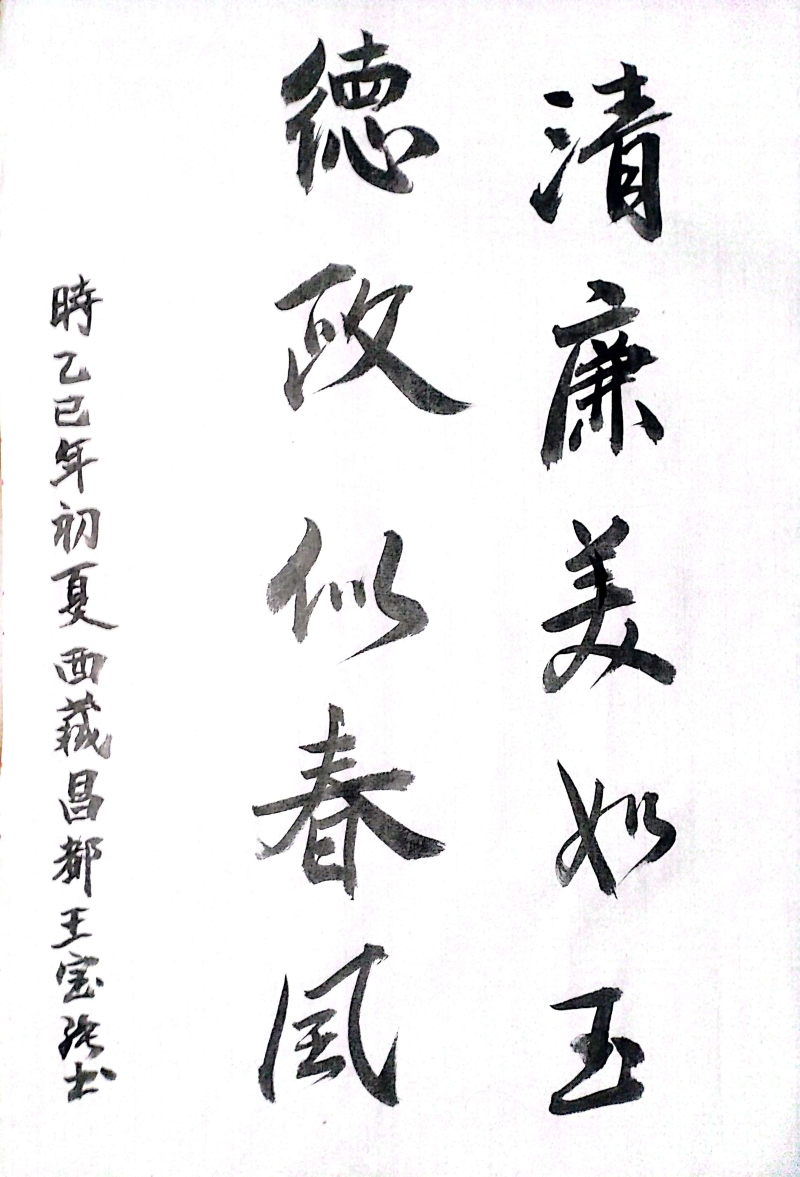 清廉美如玉
德政似春风
時乙巳年初夏西藏昌都王宝强书